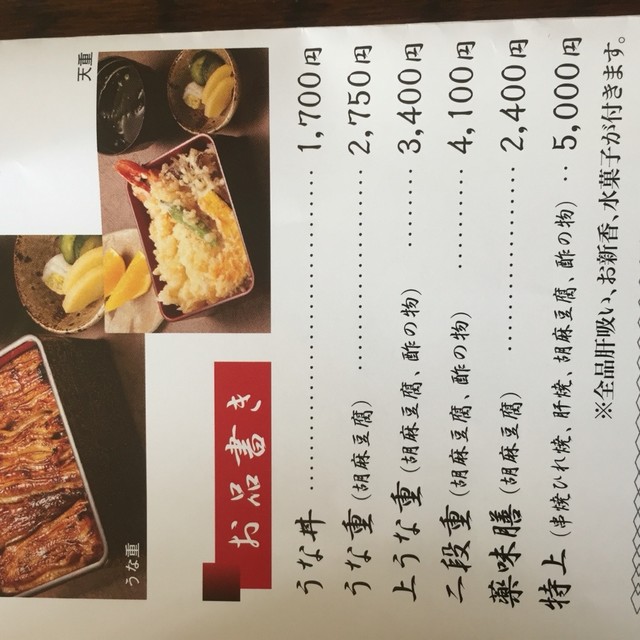 天重
うな重
お品書き
うな丼 ……………………… 1,700円
うな重(胡麻豆腐) ……………… 2,750円
上うな重(胡麻豆腐、酢の物) ……… 3,400円
二段重(胡麻豆腐、酢の物) ……… 4,100円
薬味膳(胡麻豆腐) ……………… 2,400円
特上(串焼ひれ焼、肝焼、胡麻豆腐、酢の物) ‥ 5,000円
※全品肝吸い、お新香、水菓子が付きます。